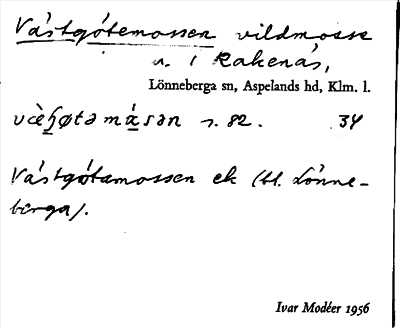 Västgötemossen vildmosse
u. 1 Rakenäs,
Lönneberga sn, Aspelands hd, Klm. l.
s. 82. 34
Västgötamossen ek (bl. Lönne-
berga).
Ivar Modéer 1956